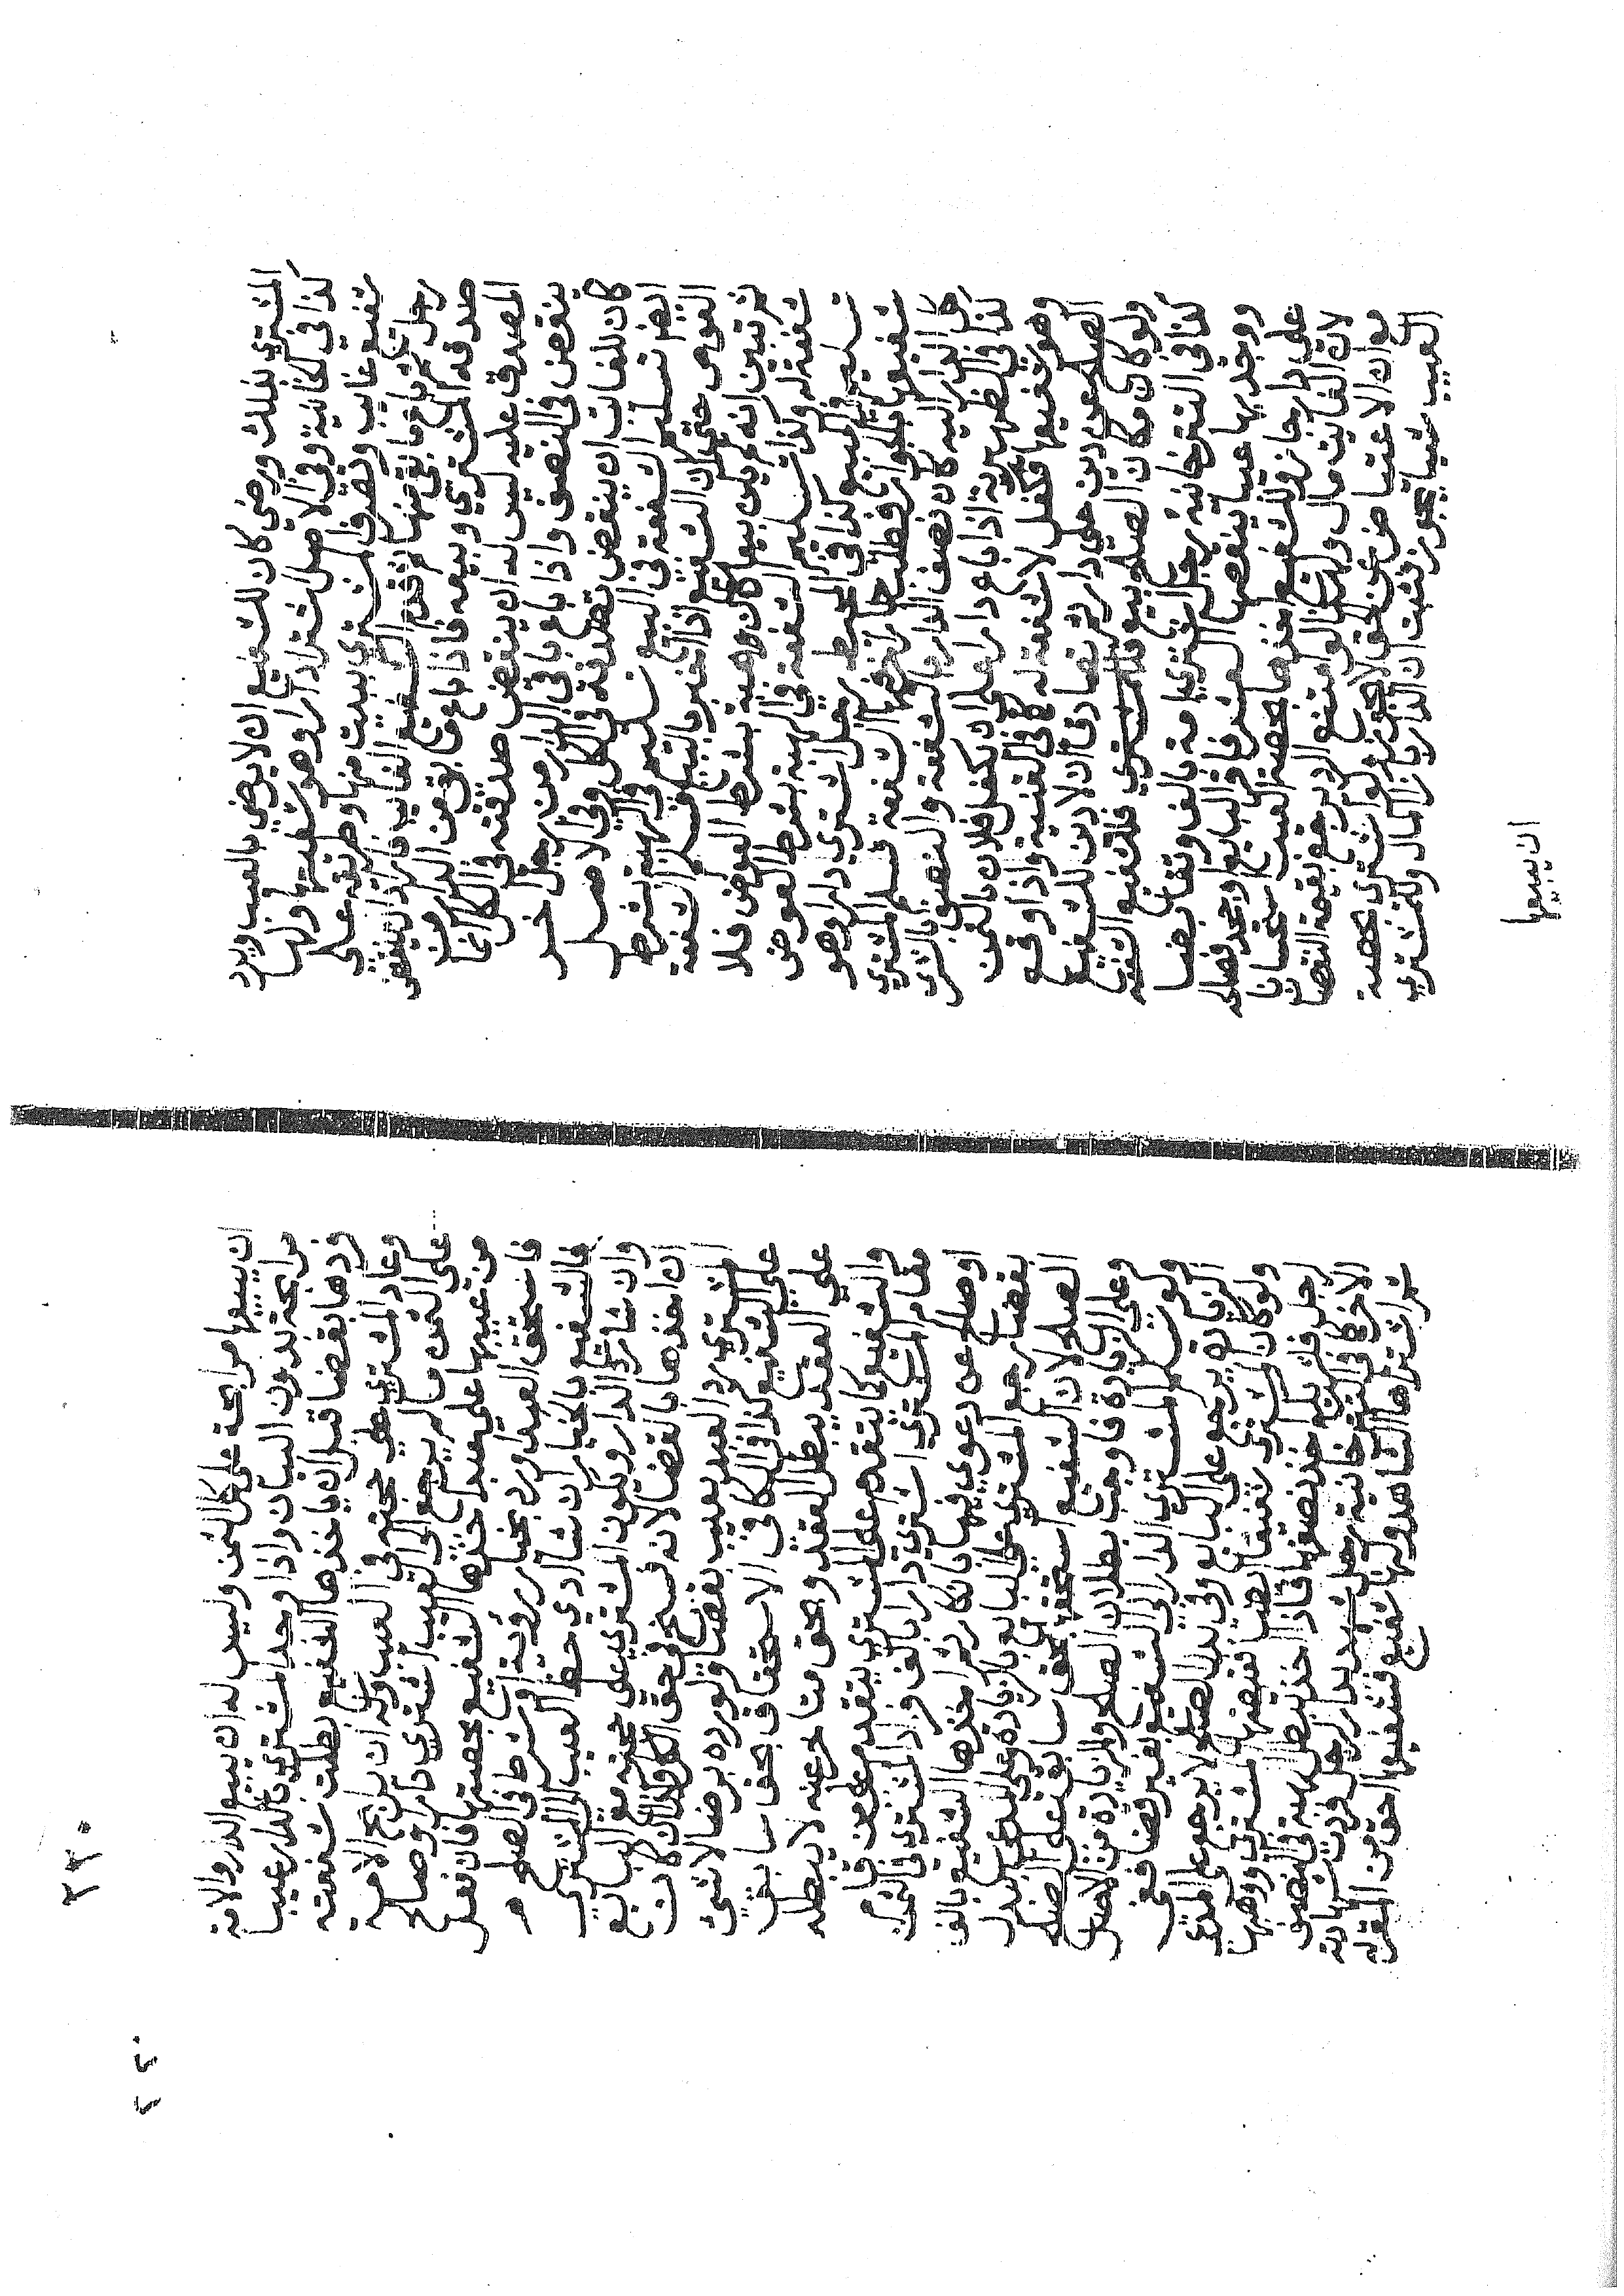 المشتري بذلك ورضي كان للشفيع ان لا يرضي بالعيب ويرد
كذا في الخانية وفي الاصل اشترا دارا وهو شفيعها ولها
شفيع غايب وتصدق المشتري ببيت منها وطريقه على
رجل ثم باع ما بقي منها ثم قدم الشفيع الغايب فاراد ان ينقض
صدقة المشتري وبيعه فاذا باع ما بقي من الدار من
المصدق عليه ليس له ان ينقض صدقته في الكل انما
ينقض في النصف واذا باع باقي الدار من رجل اخر
كان للغايب ان ينقض تصدقه في الكل وفي الاصل
ايضا تسليم الشفعة في البيع تسليم في الهبة بشرط
العوض حتى ان الشفيع اذا اخبر بالبيع فسلم الشفعة
ثم تبين انه لم يكن بيعا كان وهبة بشرط العوض فلا
شفعة له وكذا تسليم الشفعة في الهبة بشرط العوض
تسليم في البيع كذا في المحيط رجل اشتري دارا وهو
شفيعها بالجوار فطلب جار اخر فيها الشفعة فسلم المشتري
كل الدار اليه كان نصف الدار بالشفعة والنصف بالشرى
كذا في الظهيرية اذا باع دارا على ان يكفل فلان بالثمن
وهو شفيعها فكفل لا شفعة له كذا في القنية واذا وقع
الصلح عن دين على دار ثم تصادقا ان لا دين للشفيع
ولو كان مكان الصلح بيع فللشفيع الشفعة
كذا في التترخانية رجل اشترى امة بالف وتقابضا
ووجد بها عيبا ينقصها العشر فاقر البايع او جحد فصالحه
على دار جاز وللشفيع اخذها بحصة العيب استحسانا
لان الفايت مال ولهذا لو امتنع الرد رجع بقيمة النقصان
وان الاعتياض عن الحق لا يجوز ولو اشترى بحصة
العيب شيئا يجوز فثبت ان الدار بازا مال وللمشتري
ان يبيعها
٢٣٠
٢٢٠
ان يبيعها مرابحة على كل الثمن وليس له ان يبيع الدار والامة
مرابحة بدون البيان واذا وجد المشتري بالدار عيبا
فردها بقضا قبل ان ياخذها الشفيع بطلت شفعته
وعاد المشتري على حجته في العيب وله ان يرابح الامة
على الثمن ما لم يرجع الى العيب اشترى دارا وصالح
من عيبها على عبد اخذها الشفيع بحصتها فان فعل
فاستحق العبد او رد بخيار رؤية او شرط في الصلح
فالشفيع بالخيار ان شا ادي حظ العيب الى المشتري
وان شا رد الدار ويكون المشتري على حجته مع البايع
ان اخذها بالقضا لانه فسخ في حق الكل وان كان
المشتري رد العبد بعيب بقضا ولو رده برضا لا شئ
على الشفيع كذا في الكافي الاستحقاق بحق سابق
على العقد يبطل العقد وبحق متاخر عنه لا يبطله
والشفيع كما يتقدم على المشتري يتقدم على من قام
مقام المشتري اشترى دارا بالف وزاد المشتري في الثمن
او صالح عن دعوي فيها بانكار ثم اخذها الشفيع بالف
بقضا رجع المشتري على البايع بالزيادة وعلى المدعي ببدل
الصلح لان الشفيع استحقها بحق سابق على الصلح
وعلى الزيادة فاوجب بطلان الصلح والزيادة من الاصل
ولو سلم المشتري الدار الى الشفيع بغير قضا ففي
الزيادة يرجع على البايع وفي بدل الصلح لا يرجع على المدعي
ولو كان المشتري شفيعا ايضا فقبضها المشتري ووهبها
لرجل ياخذ نصفها فاذا اخذ تبطل الهبة في النصف
الاخر كذا في التترخانية رجل شهد بدار لرجل فردت شهادته
ثم اشتراها الشاهد ولها شفيع فشفيعها احق من المقر له